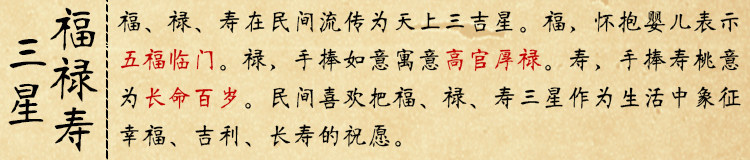 福禄寿
三星
福、禄、寿在民间流传为天上三吉星。福，怀抱婴儿表示
五福临门。禄，手捧如意寓意高官厚禄。寿，手捧寿桃意
为长命百岁。民间喜欢把福、禄、寿三星作为生活中象征
幸福、吉利、长寿的祝愿。